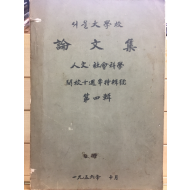 서울大學校
論文集
人文 社會科學
開校十週年特輯號
第四輯
一九五六年 十月